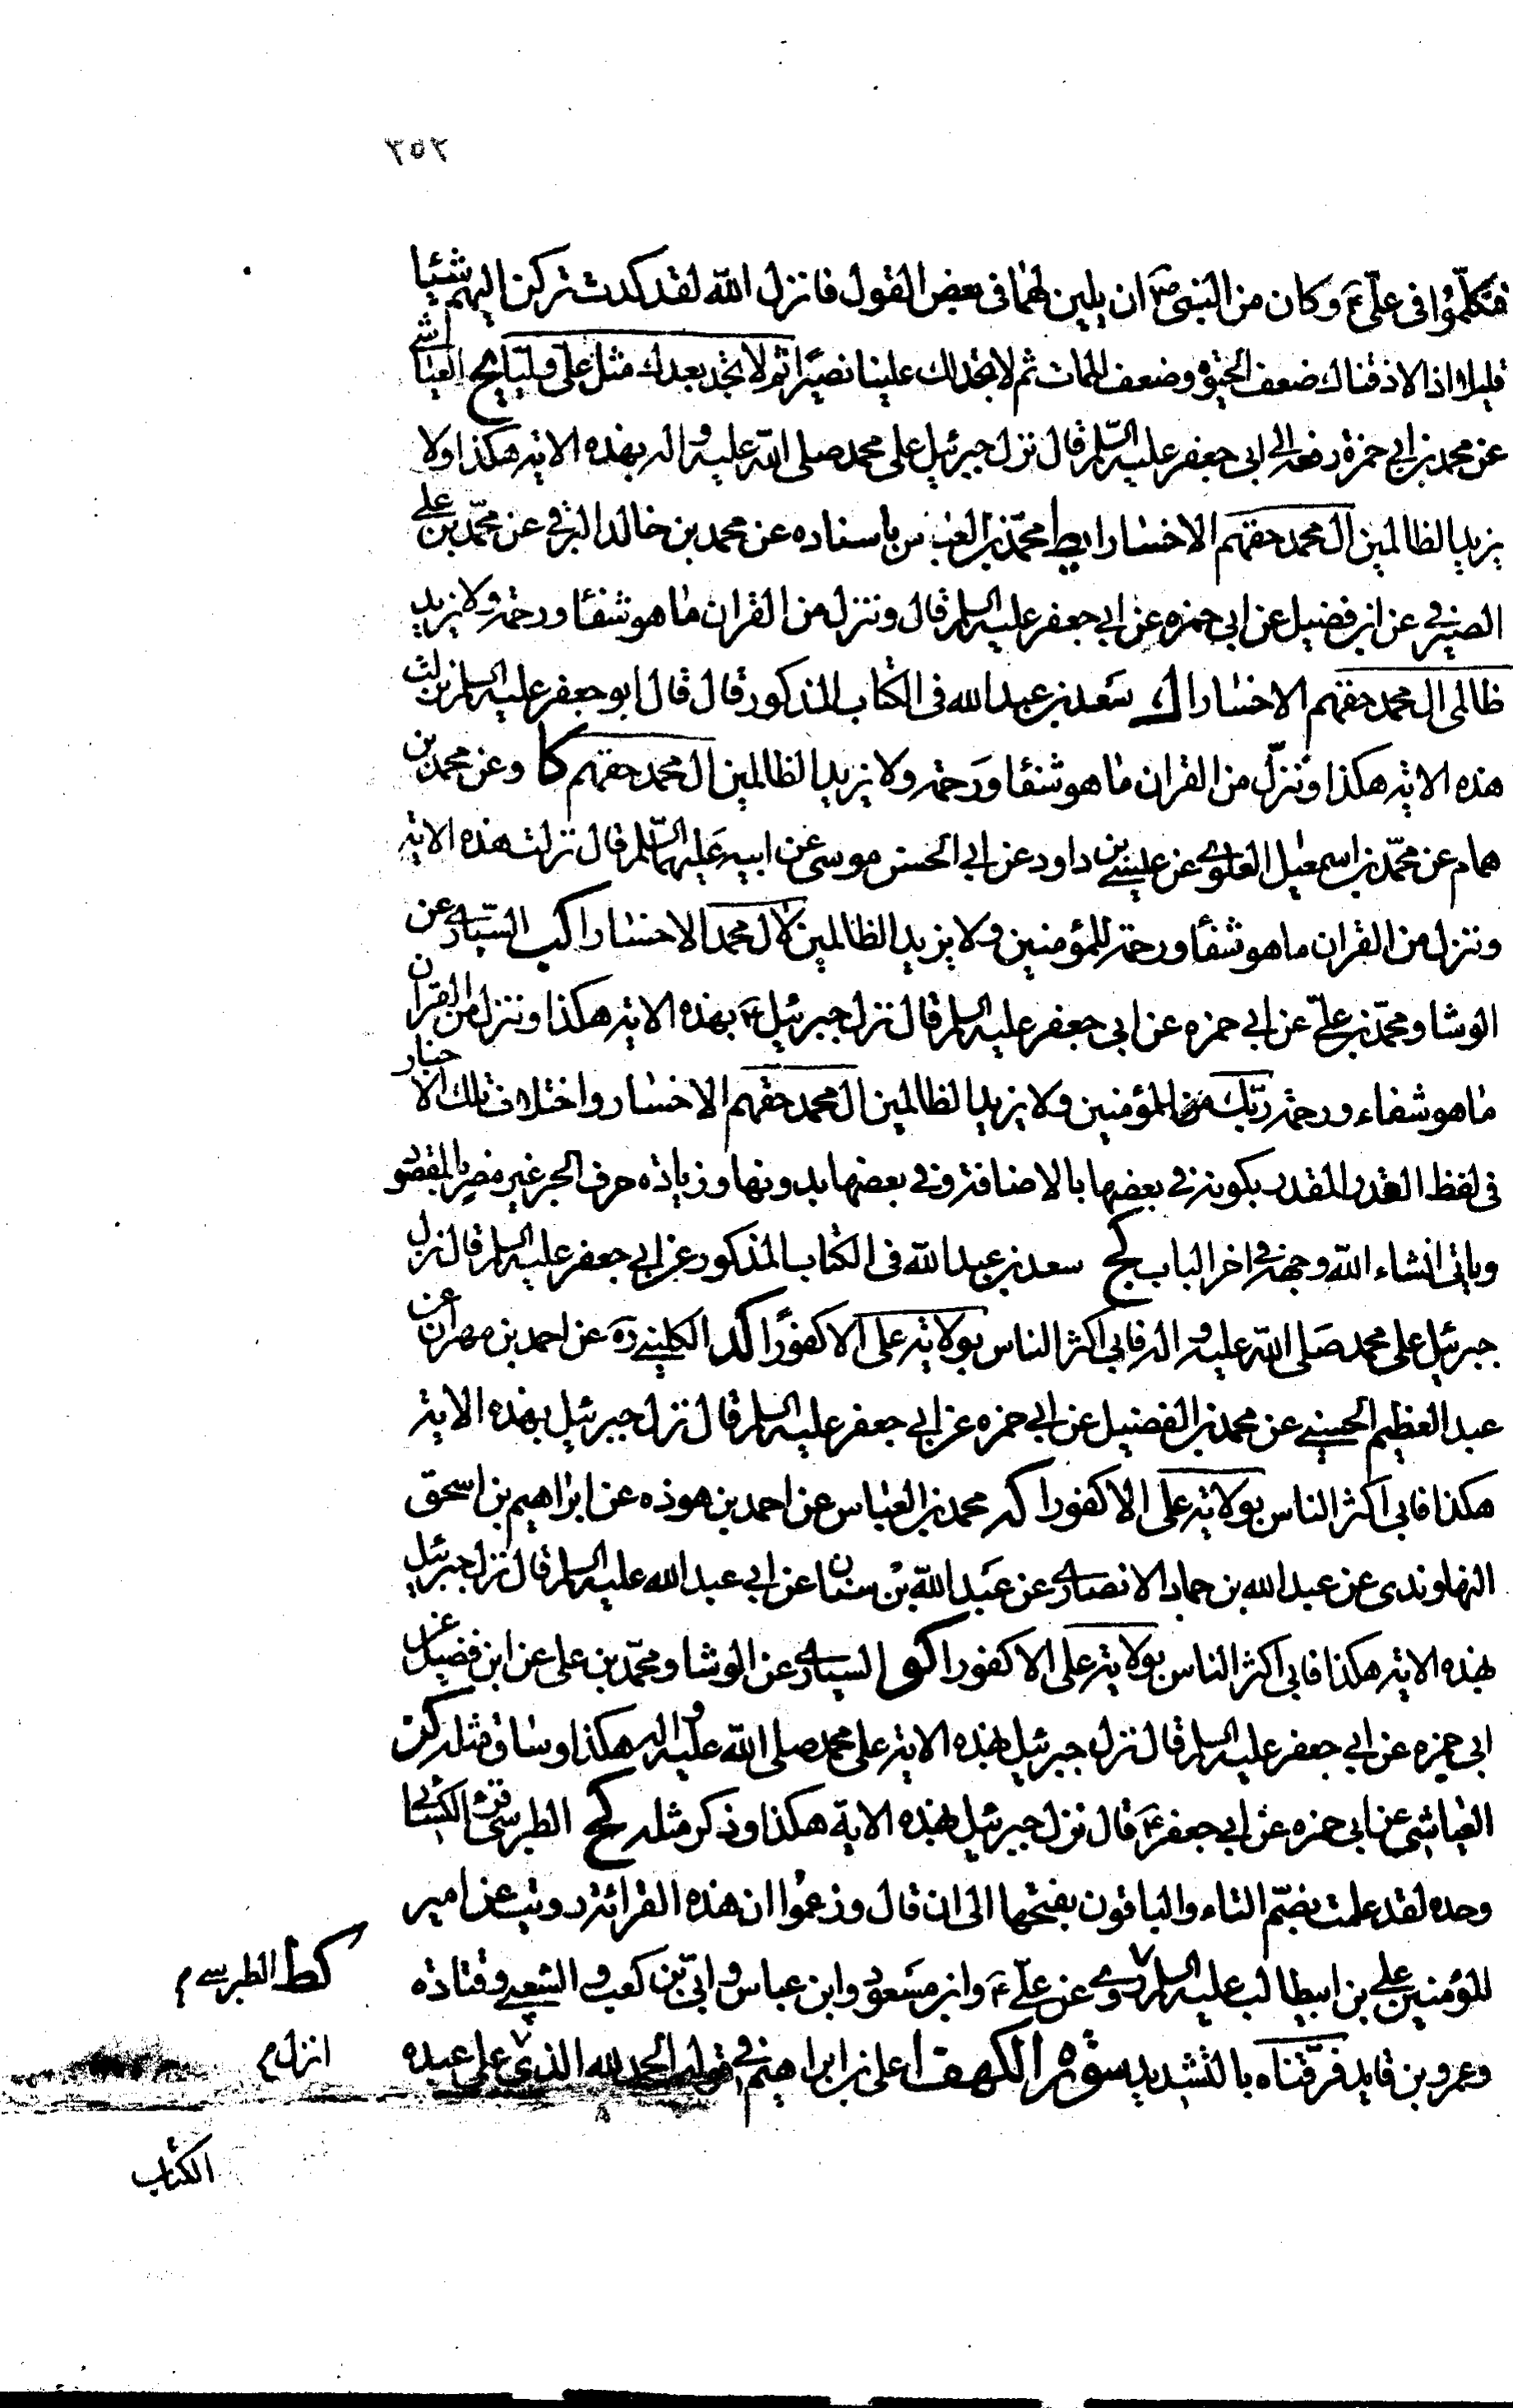 ٢٥٢
فتكلّموا فى علىّ ع وكان من النبى ص ان يلين لهما فى بعض القول فانزل الله لقد كدت تركن اليهم شيئا
قليلا واذا لاذقناك ضعف الحيوة وضعف الممات ثم لا تجد لك علينا نصيرا ثم لا تجد بعدك مثل علىّ وليّا يح العياشى
عن محمد بن ابى حمزة رفعه الى ابى جعفر عليه السلم قال نزل جبرئيل على محمد صلى الله عليه واله بهذه الاية هكذا ولا
يزيد الظالمين ال محمد حقهم الا خسارا يط محمّد بن العباس باسناده عن محمد بن خالد البرقى عن محمّد بن على
الصيرفى عن ابن فضيل عن ابى حمزه عن ابى جعفر عليه السلم قال وننزل من القران ما هو شفا ورحمة ولا يزيد
ظالمى ال محمد حقهم الا خسارا ك سعد بن عبد الله فى الكتاب المذكور قال قال ابو جعفر عليه السلم نزلت
هذه الاية هكذا وننزّل من القران ما هو شفا ورحمة ولا يزيد الظالمين ال محمد حقهم كا وعن محمد بن
همام عن محمّد بن اسمعيل العلوى عن عيسى بن داود عن ابى الحسن موسى عن ابيه عليهما السّلم قال نزلت هذه الاية
وننزل من القران ما هو شفا ورحمة للمؤمنين ولا يزيد الظالمين لال محمد الا خسارا كب السيارى عن
الوشا ومحمّد بن علىّ عن ابى حمزه عن ابى جعفر عليه السلم قال نزل جبرئيل ع بهذه الاية هكذا وننزل من القران
ما هو شفاء ورحمة ربّك للمؤمنين ولا يزيد الظالمين ال محمد حقهم الا خسار واختلاف تلك الاخبار
فى لفظ القدر المقدر بكونه فى بعضها بالاضافة وفى بعضها بدونها وزياده حرف الجر غير مضر بالمقصو
وياتى انشاء الله وجهه فى اخر الباب كج سعد بن عبد الله فى الكتاب المذكور عن ابى جعفر عليه السلم قال نزل
جبرئيل على محمد صلى الله عليه واله فابى اكثر الناس بولاية على الا كفورًا كد الكلينى ره عن احمد بن مهران عن
عبد العظيم الحسينى عن محمد بن الفضيل عن ابى حمزه عن ابى جعفر عليه السلم قال نزل جبرئيل بهذه الاية
هكذا فابى اكثر الناس بولاية على الا كفورا كه محمد بن العباس عن احمد بن هوذه عن ابراهيم بن اسحق
النهاوندى عن عبد الله بن حماد الانصارى عن عبد الله بن سنان عن ابى عبد الله عليه السلم قال نزل جبرئيل
بهذه الاية هكذا فابى اكثر الناس بولاية على الا كفورا كو السيارى عن الوشا ومحمّد بن على عن ابن فضيل عن
ابى حمزه عن ابى جعفر عليه السلم قال نزل جبرئيل بهذه الاية على محمد صلى الله عليه واله هكذا وساق مثله كز
العياشى عن ابى حمزه عن ابى جعفر ع قال نزل جبرئيل بهذه الاية هكذا وذكر مثله كح الطبرسى قرئ الكسائى
وحده لقد علمت بضمّ التاء والباقون بفتحها الى ان قال وزعموا ان هذه القرائة رويت عن امير
المؤمنين على بن ابيطالب عليه السلم وروى عن علىّ ع وابن مسعود وابن عباس وابىّ بن كعب والشعبى وقتادة
كط الطبرسى م
وعمرو بن قايد فرّقناه بالتشديد سورة الكهف ا على بن ابراهيم فى قوله الحمد لله الذى على عبده
انزل م
الكتاب